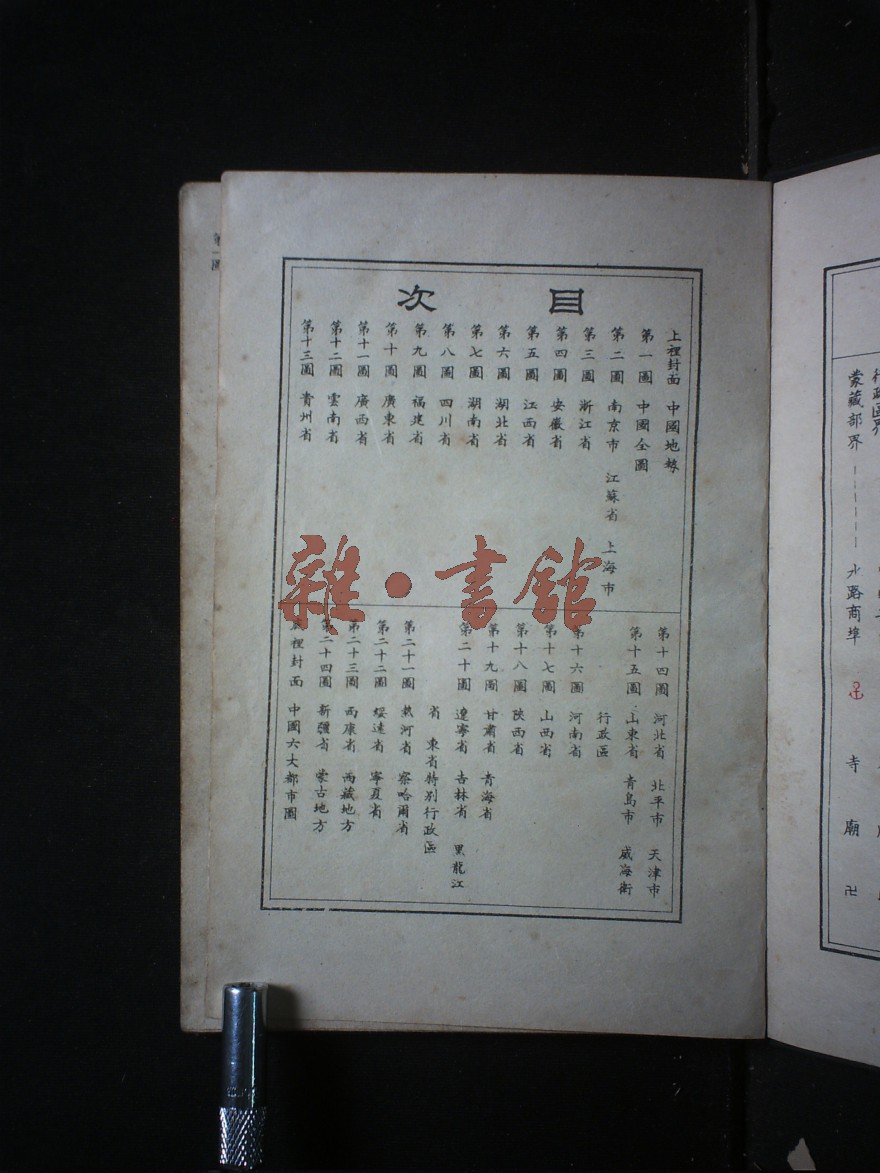 目次
上裡封面 中國地勢
第一圖 中國全圖
第二圖 南京市 江蘇省 上海市
第三圖 浙江省
第四圖 安徽省
第五圖 江西省
第六圖 湖北省
第七圖 湖南省
第八圖 四川省
第九圖 福建省
第十圖 廣東省
第十一圖 廣西省
第十二圖 雲南省
第十三圖 貴州省
第十四圖 河北省 北平市 天津市
第十五圖 山東省 青島市 威海衛
行政區
第十六圖 河南省
第十七圖 山西省
第十八圖 陝西省
第十九圖 甘肅省 青海省
第二十圖 遼寧省 吉林省 黑龍江
省 東省特別行政區
第二十一圖 熱河省 察哈爾省
第二十二圖 綏遠省 寧夏省
第二十三圖 西康省 西藏地方
第二十四圖 新疆省 蒙古地方
底裡封面 中國六大都市圖
雜·書館
行政區界
蒙藏部界 水路商埠 寺廟 卍